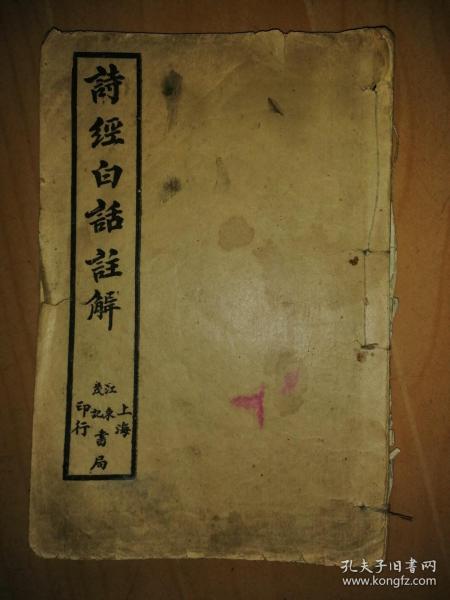 詩經白話註解
上海
江東茂記書局
印行
孔夫子旧书网
www.kongfz.com